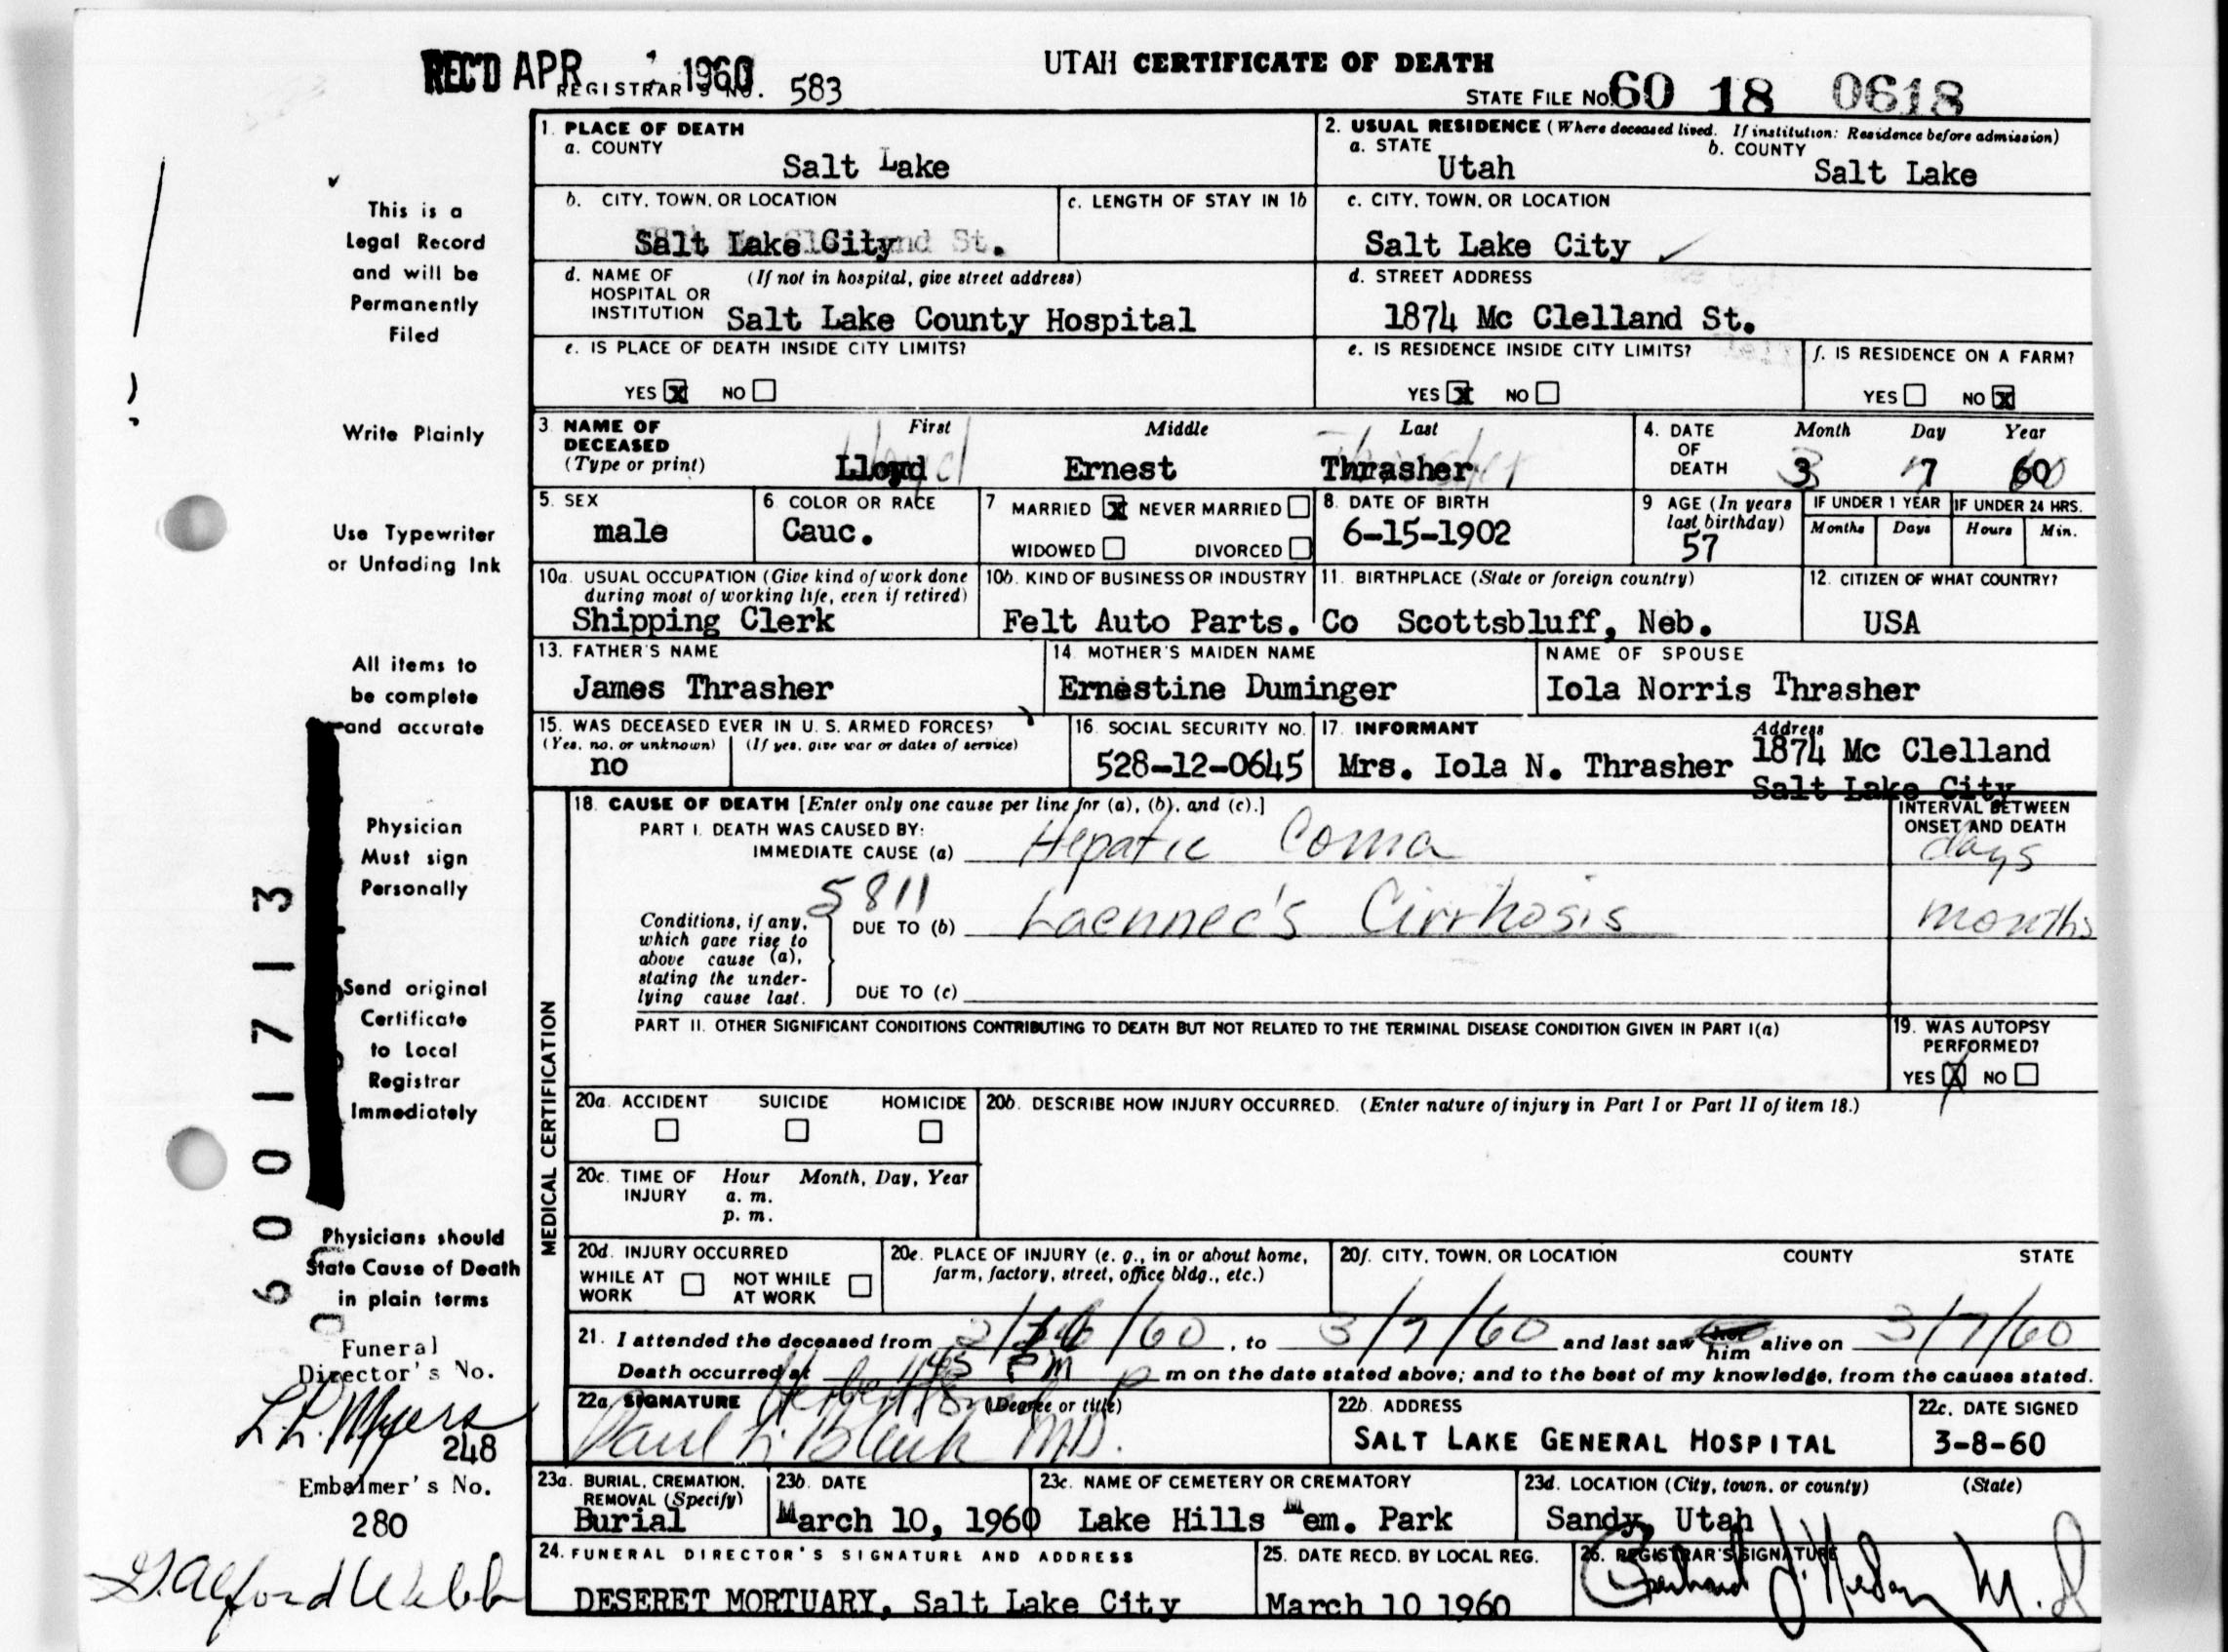 REC'D APR 1960
REGISTRAR'S NO. 583
UTAH CERTIFICATE OF DEATH
STATE FILE NO. 60 18 0618
This is a
Legal Record
and will be
Permanently
Filed
Write Plainly
Use Typewriter
or Unfading Ink
All items to
be complete
and accurate
Physician
Must sign
Personally
Send original
Certificate
to Local
Registrar
Immediately
Physicians should
State Cause of Death
in plain terms
Funeral
Director's No.
L.R. Myers
248
Embalmer's No.
280
G. Alford Webb
6001713
1. PLACE OF DEATH
a. COUNTY
Salt Lake
2. USUAL RESIDENCE (Where deceased lived. If institution: Residence before admission)
a. STATE b. COUNTY
Utah Salt Lake
b. CITY, TOWN, OR LOCATION
Salt Lake City
c. LENGTH OF STAY IN 1b
c. CITY, TOWN, OR LOCATION
Salt Lake City
d. NAME OF (If not in hospital, give street address)
HOSPITAL OR
INSTITUTION Salt Lake County Hospital
d. STREET ADDRESS
1874 Mc Clelland St.
e. IS PLACE OF DEATH INSIDE CITY LIMITS?
YES X NO
e. IS RESIDENCE INSIDE CITY LIMITS?
YES X NO
f. IS RESIDENCE ON A FARM?
YES NO X
3. NAME OF First Middle Last
DECEASED
(Type or print) Lloyd Ernest Thrasher
4. DATE Month Day Year
OF
DEATH 3 7 60
5. SEX
male
6. COLOR OR RACE
Cauc.
7 MARRIED X NEVER MARRIED
WIDOWED DIVORCED
8. DATE OF BIRTH
6-15-1902
9 AGE (In years
last birthday)
57
IF UNDER 1 YEAR IF UNDER 24 HRS.
Months Days Hours Min.
10a. USUAL OCCUPATION (Give kind of work done
during most of working life, even if retired)
Shipping Clerk
10b. KIND OF BUSINESS OR INDUSTRY
Felt Auto Parts. Co
11. BIRTHPLACE (State or foreign country)
Scottsbluff, Neb.
12. CITIZEN OF WHAT COUNTRY?
USA
13. FATHER'S NAME
James Thrasher
14. MOTHER'S MAIDEN NAME
Ernestine Duminger
NAME OF SPOUSE
Iola Norris Thrasher
15. WAS DECEASED EVER IN U. S. ARMED FORCES?
(Yes, no, or unknown) (If yes, give war or dates of service)
no
16. SOCIAL SECURITY NO.
528-12-0645
17. INFORMANT Address
Mrs. Iola N. Thrasher 1874 Mc Clelland
Salt Lake City
MEDICAL CERTIFICATION
18. CAUSE OF DEATH [Enter only one cause per line for (a), (b), and (c).]
PART I. DEATH WAS CAUSED BY:
IMMEDIATE CAUSE (a) Hepatic Coma
INTERVAL BETWEEN
ONSET AND DEATH
days
5811
Conditions, if any,
which gave rise to
above cause (a),
stating the under-
lying cause last.
DUE TO (b) Laennec's Cirrhosis months
DUE TO (c)
PART II. OTHER SIGNIFICANT CONDITIONS CONTRIBUTING TO DEATH BUT NOT RELATED TO THE TERMINAL DISEASE CONDITION GIVEN IN PART I(a)
19. WAS AUTOPSY
PERFORMED?
YES X NO
20a. ACCIDENT SUICIDE HOMICIDE
20b. DESCRIBE HOW INJURY OCCURRED. (Enter nature of injury in Part I or Part II of item 18.)
20c. TIME OF Hour Month, Day, Year
INJURY a. m.
p. m.
20d. INJURY OCCURRED
WHILE AT NOT WHILE
WORK AT WORK
20e. PLACE OF INJURY (e. g., in or about home,
farm, factory, street, office bldg., etc.)
20f. CITY, TOWN, OR LOCATION COUNTY STATE
21. I attended the deceased from /60, to 3/7/60 and last saw her him alive on 3/7/60
Death occurred at 45 PM m on the date stated above; and to the best of my knowledge, from the causes stated.
22a. SIGNATURE (Degree or title)
Paul MD.
22b. ADDRESS
SALT LAKE GENERAL HOSPITAL
22c. DATE SIGNED
3-8-60
23a. BURIAL, CREMATION,
REMOVAL (Specify)
Burial
23b. DATE
March 10, 1960
23c. NAME OF CEMETERY OR CREMATORY
Lake Hills Mem. Park
23d. LOCATION (City, town, or county) (State)
Sandy, Utah
24. FUNERAL DIRECTOR'S SIGNATURE AND ADDRESS
DESERET MORTUARY, Salt Lake City
25. DATE RECD. BY LOCAL REG.
March 10 1960
26. REGISTRAR'S SIGNATURE
M.D.